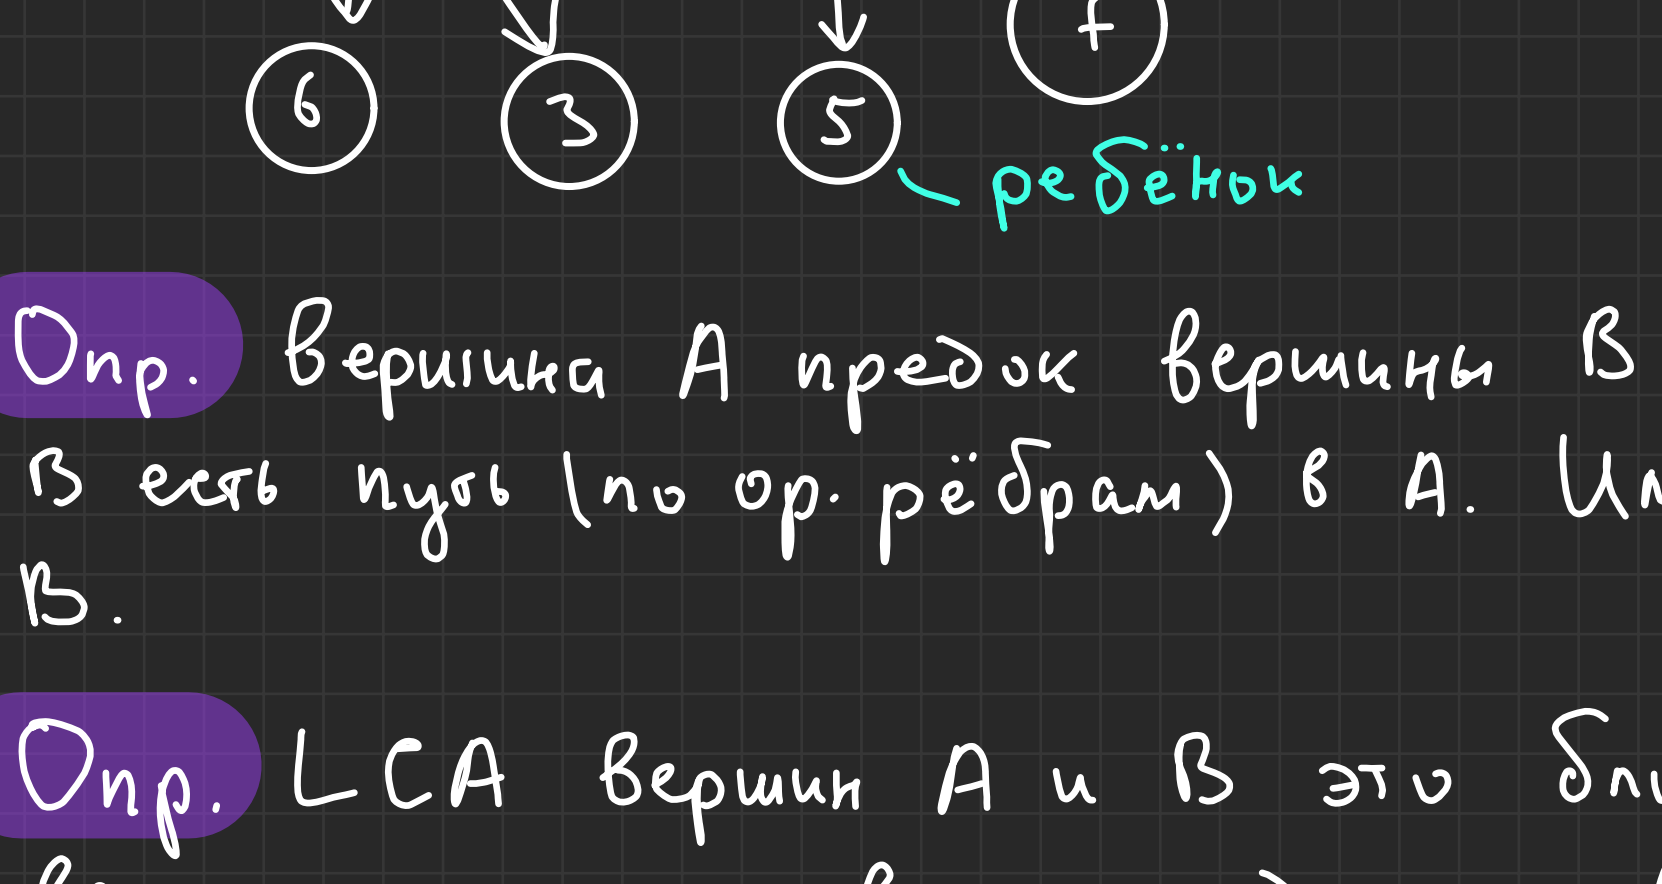 6 3 5 7
ребёнок
Опр. Вершина A предок вершины B
B есть путь (по ор. рёбрам) в A.
B.
Опр. LCA вершин A и B это